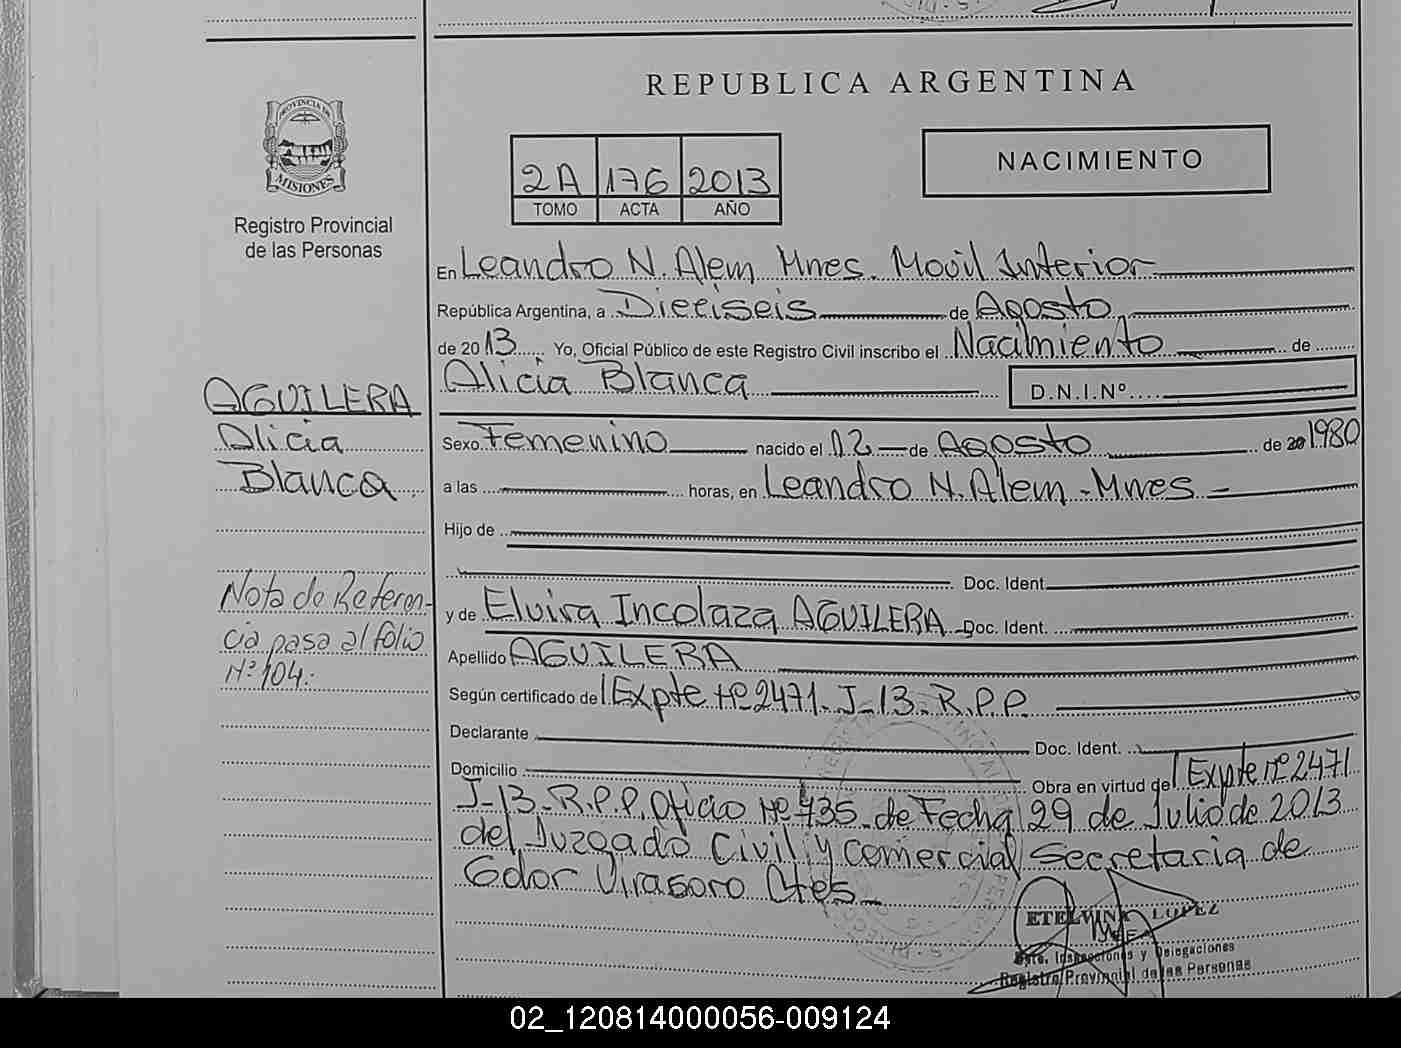 REPUBLICA ARGENTINA
PROVINCIA DE
MISIONES
Registro Provincial
de las Personas
2A 176 2013
TOMO ACTA AÑO
NACIMIENTO
En Leandro N. Alem Mnes. Movil Interior
República Argentina, a Dieciseis de Agosto
de 2013 Yo, Oficial Público de este Registro Civil inscribo el Nacimiento de
Alicia Blanca D.N.I.Nº
AGUILERA
Alicia
Blanca
Sexo Femenino nacido el 12 de Agosto de 20 1980
a las horas, en Leandro N. Alem - Mnes -
Hijo de
Doc. Ident.
y de Elvira Incolaza AGUILERA Doc. Ident.
Apellido AGUILERA
Nota de Referen-
cia pasa al folio
Nº 104.
Según certificado de Expte Nº 2471. J-13-R.P.P.
Declarante Doc. Ident.
Domicilio Obra en virtud de Expte Nº 2471
J-13-R.P.P. Oficio Nº 435 de Fecha 29 de Julio de 2013
del Juzgado Civil y Comercial Secretaria de
Gdor Virasoro Ctes
ETELVINA LOPEZ
JEFA
Dpto. Inspecciones y Delegaciones
Registro Provincial de las Personas
02_120814000056-009124